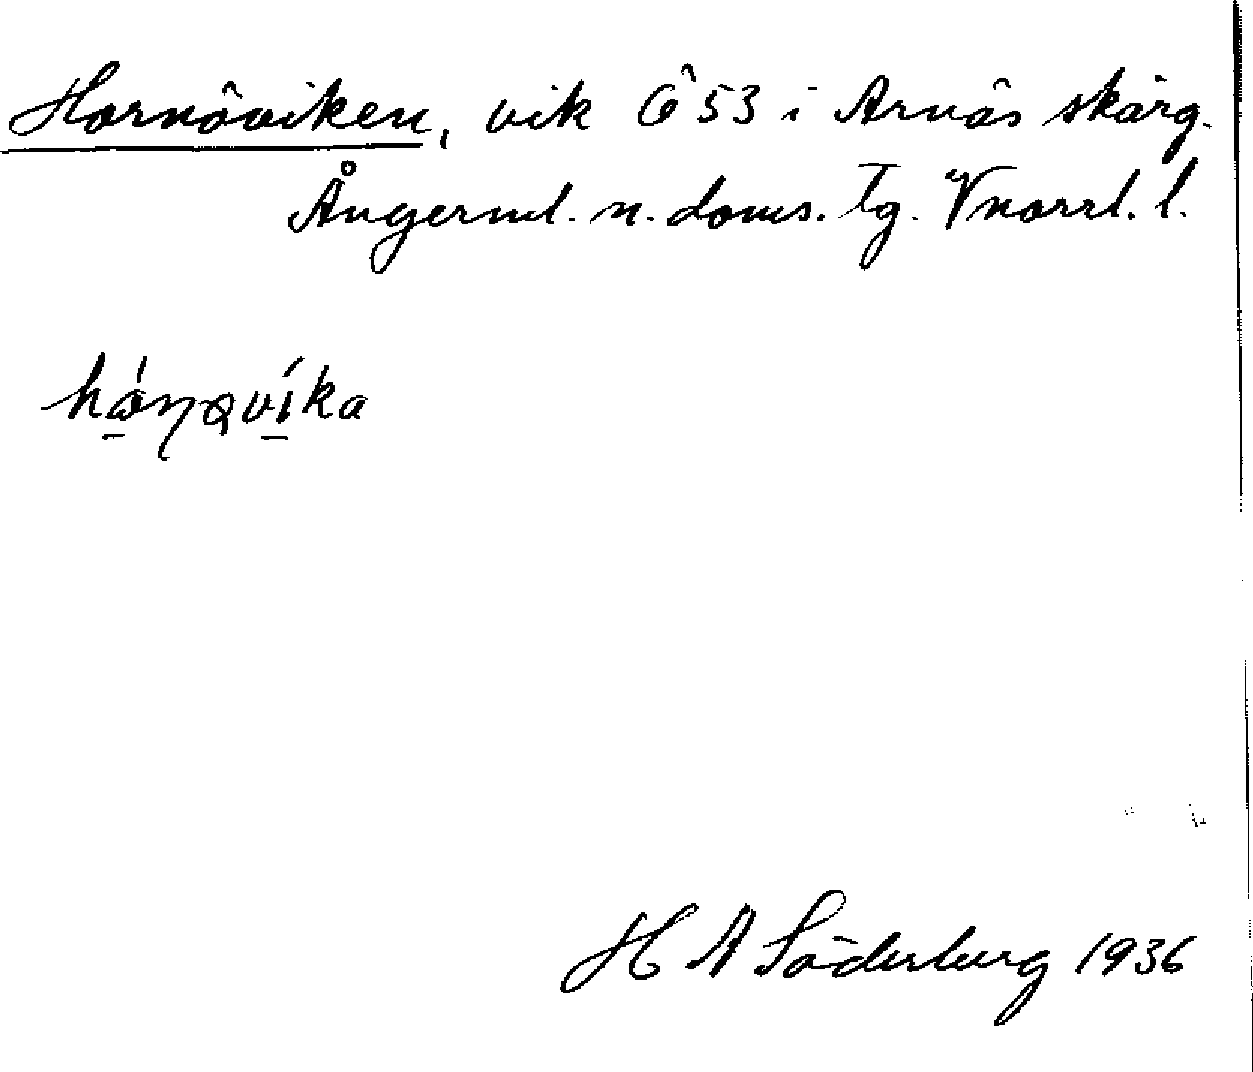 Hornöviken, vik Ö 53 i Arnäs skärg.
Ångerml. n. doms. Tg. Vnorrl. l.
H A Söderberg 1936